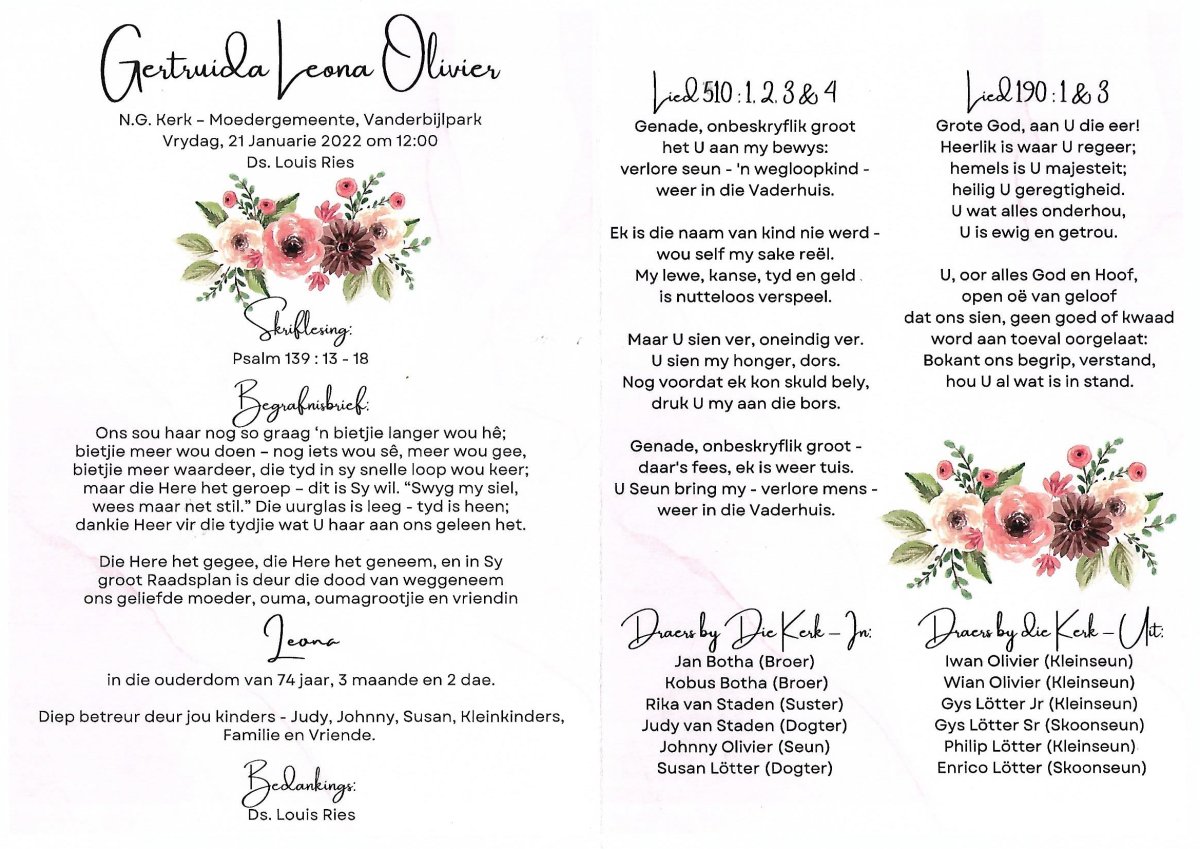 Gertruida Leona Olivier
N.G. Kerk – Moedergemeente, Vanderbijlpark
Vrydag, 21 Januarie 2022 om 12:00
Ds. Louis Ries
Skriflesing:
Psalm 139 : 13 - 18
Begrafnisbrief:
Ons sou haar nog so graag ‘n bietjie langer wou hê;
bietjie meer wou doen – nog iets wou sê, meer wou gee,
bietjie meer waardeer, die tyd in sy snelle loop wou keer;
maar die Here het geroep – dit is Sy wil. “Swyg my siel,
wees maar net stil.” Die uurglas is leeg - tyd is heen;
dankie Heer vir die tydjie wat U haar aan ons geleen het.
Die Here het gegee, die Here het geneem, en in Sy
groot Raadsplan is deur die dood van weggeneem
ons geliefde moeder, ouma, oumagrootjie en vriendin
Leona
in die ouderdom van 74 jaar, 3 maande en 2 dae.
Diep betreur deur jou kinders - Judy, Johnny, Susan, Kleinkinders,
Familie en Vriende.
Bedankings:
Ds. Louis Ries
Lied 510 : 1, 2, 3 & 4
Genade, onbeskryflik groot
het U aan my bewys:
verlore seun - 'n wegloopkind -
weer in die Vaderhuis.
Ek is die naam van kind nie werd -
wou self my sake reël.
My lewe, kanse, tyd en geld
is nutteloos verspeel.
Maar U sien ver, oneindig ver.
U sien my honger, dors.
Nog voordat ek kon skuld bely,
druk U my aan die bors.
Genade, onbeskryflik groot -
daar's fees, ek is weer tuis.
U Seun bring my - verlore mens -
weer in die Vaderhuis.
Lied 190 : 1 & 3
Grote God, aan U die eer!
Heerlik is waar U regeer;
hemels is U majesteit;
heilig U geregtigheid.
U wat alles onderhou,
U is ewig en getrou.
U, oor alles God en Hoof,
open oë van geloof
dat ons sien, geen goed of kwaad
word aan toeval oorgelaat:
Bokant ons begrip, verstand,
hou U al wat is in stand.
Draers by Die Kerk – In:
Jan Botha (Broer)
Kobus Botha (Broer)
Rika van Staden (Suster)
Judy van Staden (Dogter)
Johnny Olivier (Seun)
Susan Lötter (Dogter)
Draers by die Kerk – Uit:
Iwan Olivier (Kleinseun)
Wian Olivier (Kleinseun)
Gys Lötter Jr (Kleinseun)
Gys Lötter Sr (Skoonseun)
Philip Lötter (Kleinseun)
Enrico Lötter (Skoonseun)